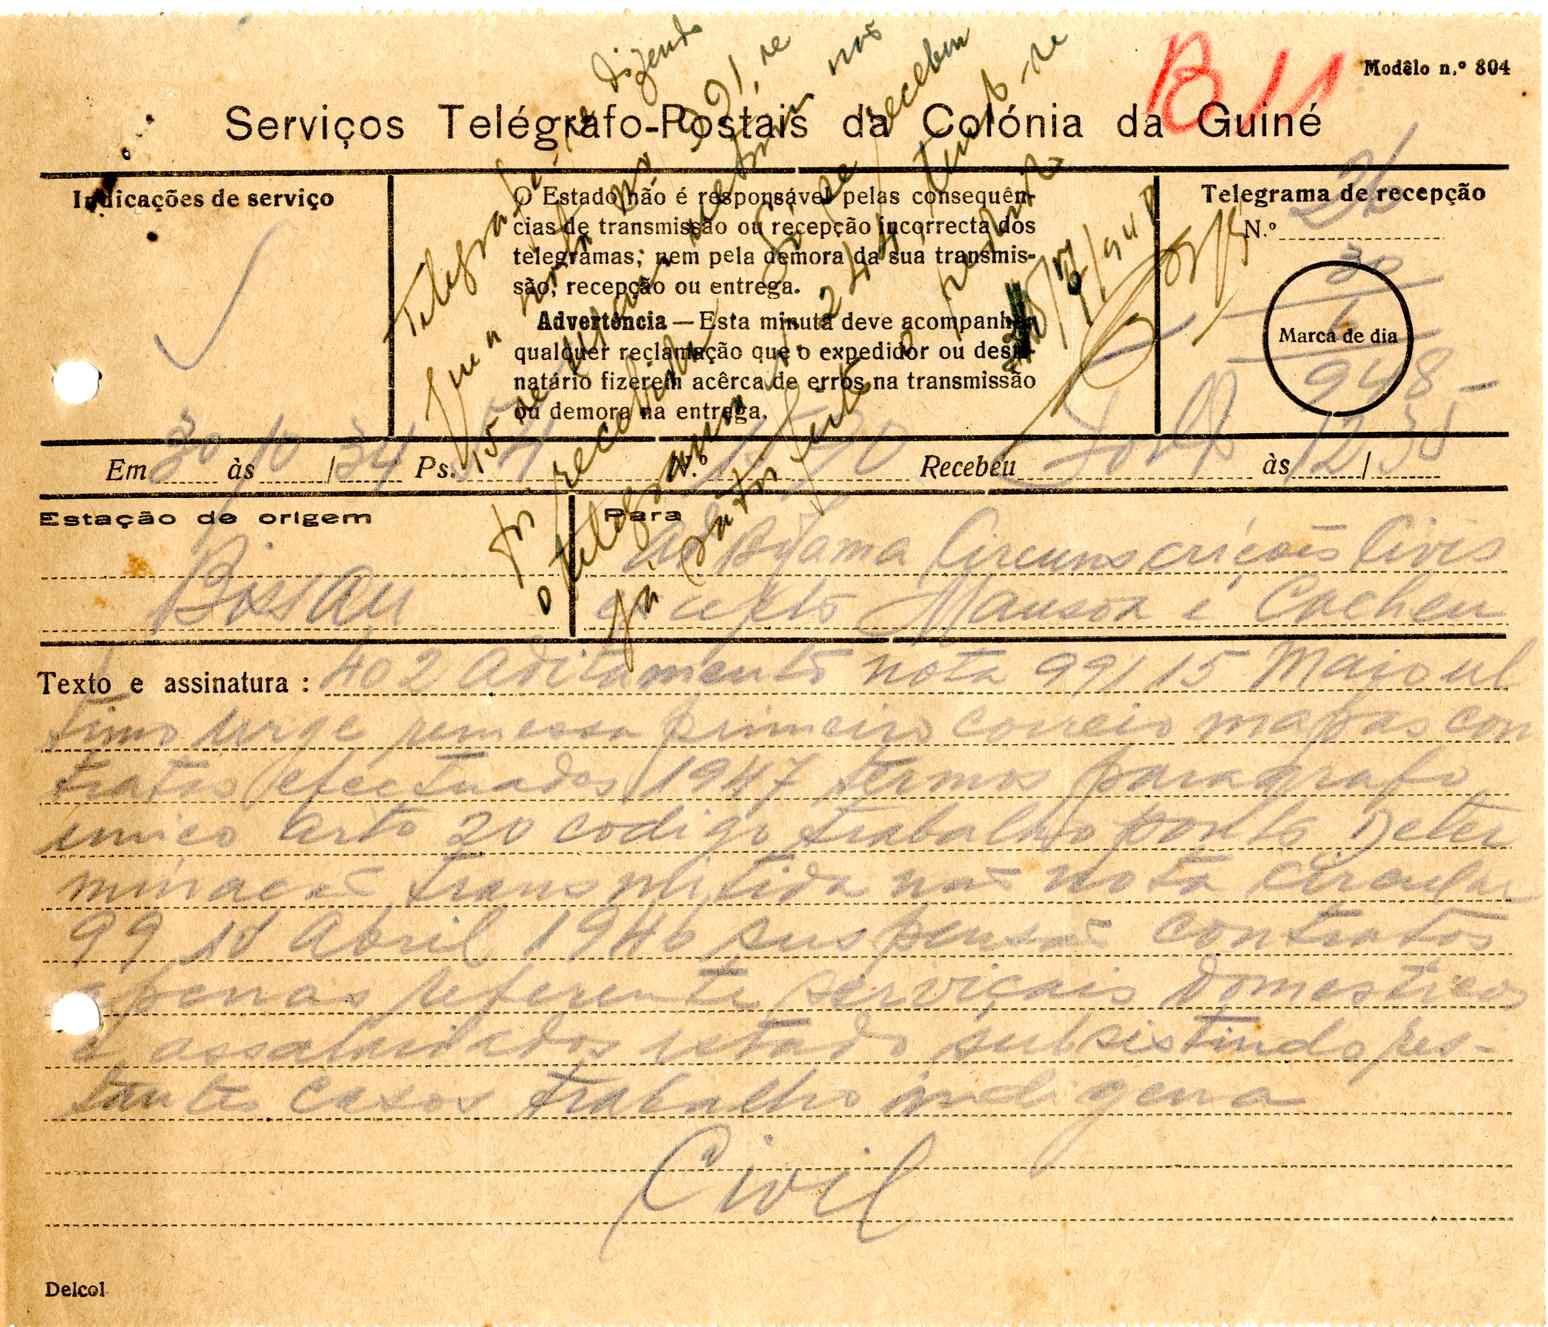 B 11
Modêlo n.º 804
Serviços Telégrafo-Postais da Colónia da Guiné
Indicações de serviço
O Estado não é responsável pelas consequên-
cias de transmissão ou recepção incorrecta dos
telegramas, nem pela demora da sua transmis-
são, recepção ou entrega.
Advertência — Esta minuta deve acompanhar
qualquer reclamação que o expedidor ou desti-
natário fizerem acêrca de erros na transmissão
ou demora na entrega.
Telegrama de recepção
N.º 26
30
948
Marca de dia
Telegrafe-se dizendo
que a nota nº 991, de
15 de Maio
foi recebida. Só se recebeu
o telegrama nº 244
Já satisfeito o pedido
/7/948
Em 30 às 10/34 Ps. 54 N.º 1590 Recebeu às 12/38
Estação de origem
Bissau
Para
Ad Bijama Circunscrições Civis
excepto Mansoa e Cacheu
Texto e assinatura: 402 Aditamento nota 991 15 Maio ul
timo urge remessa primeiro correio mapas con
tratos efectuados 1947 termos paragrafo
unico arto 20 codigo trabalho ponto Deter
minação transmitida na nota circular
99 10 Abril 1946 suspensão contratos
apenas referente serviçais domesticos
e assalariados estado subsistindo res-
tantes casos trabalho indigena
Civil
Delcol